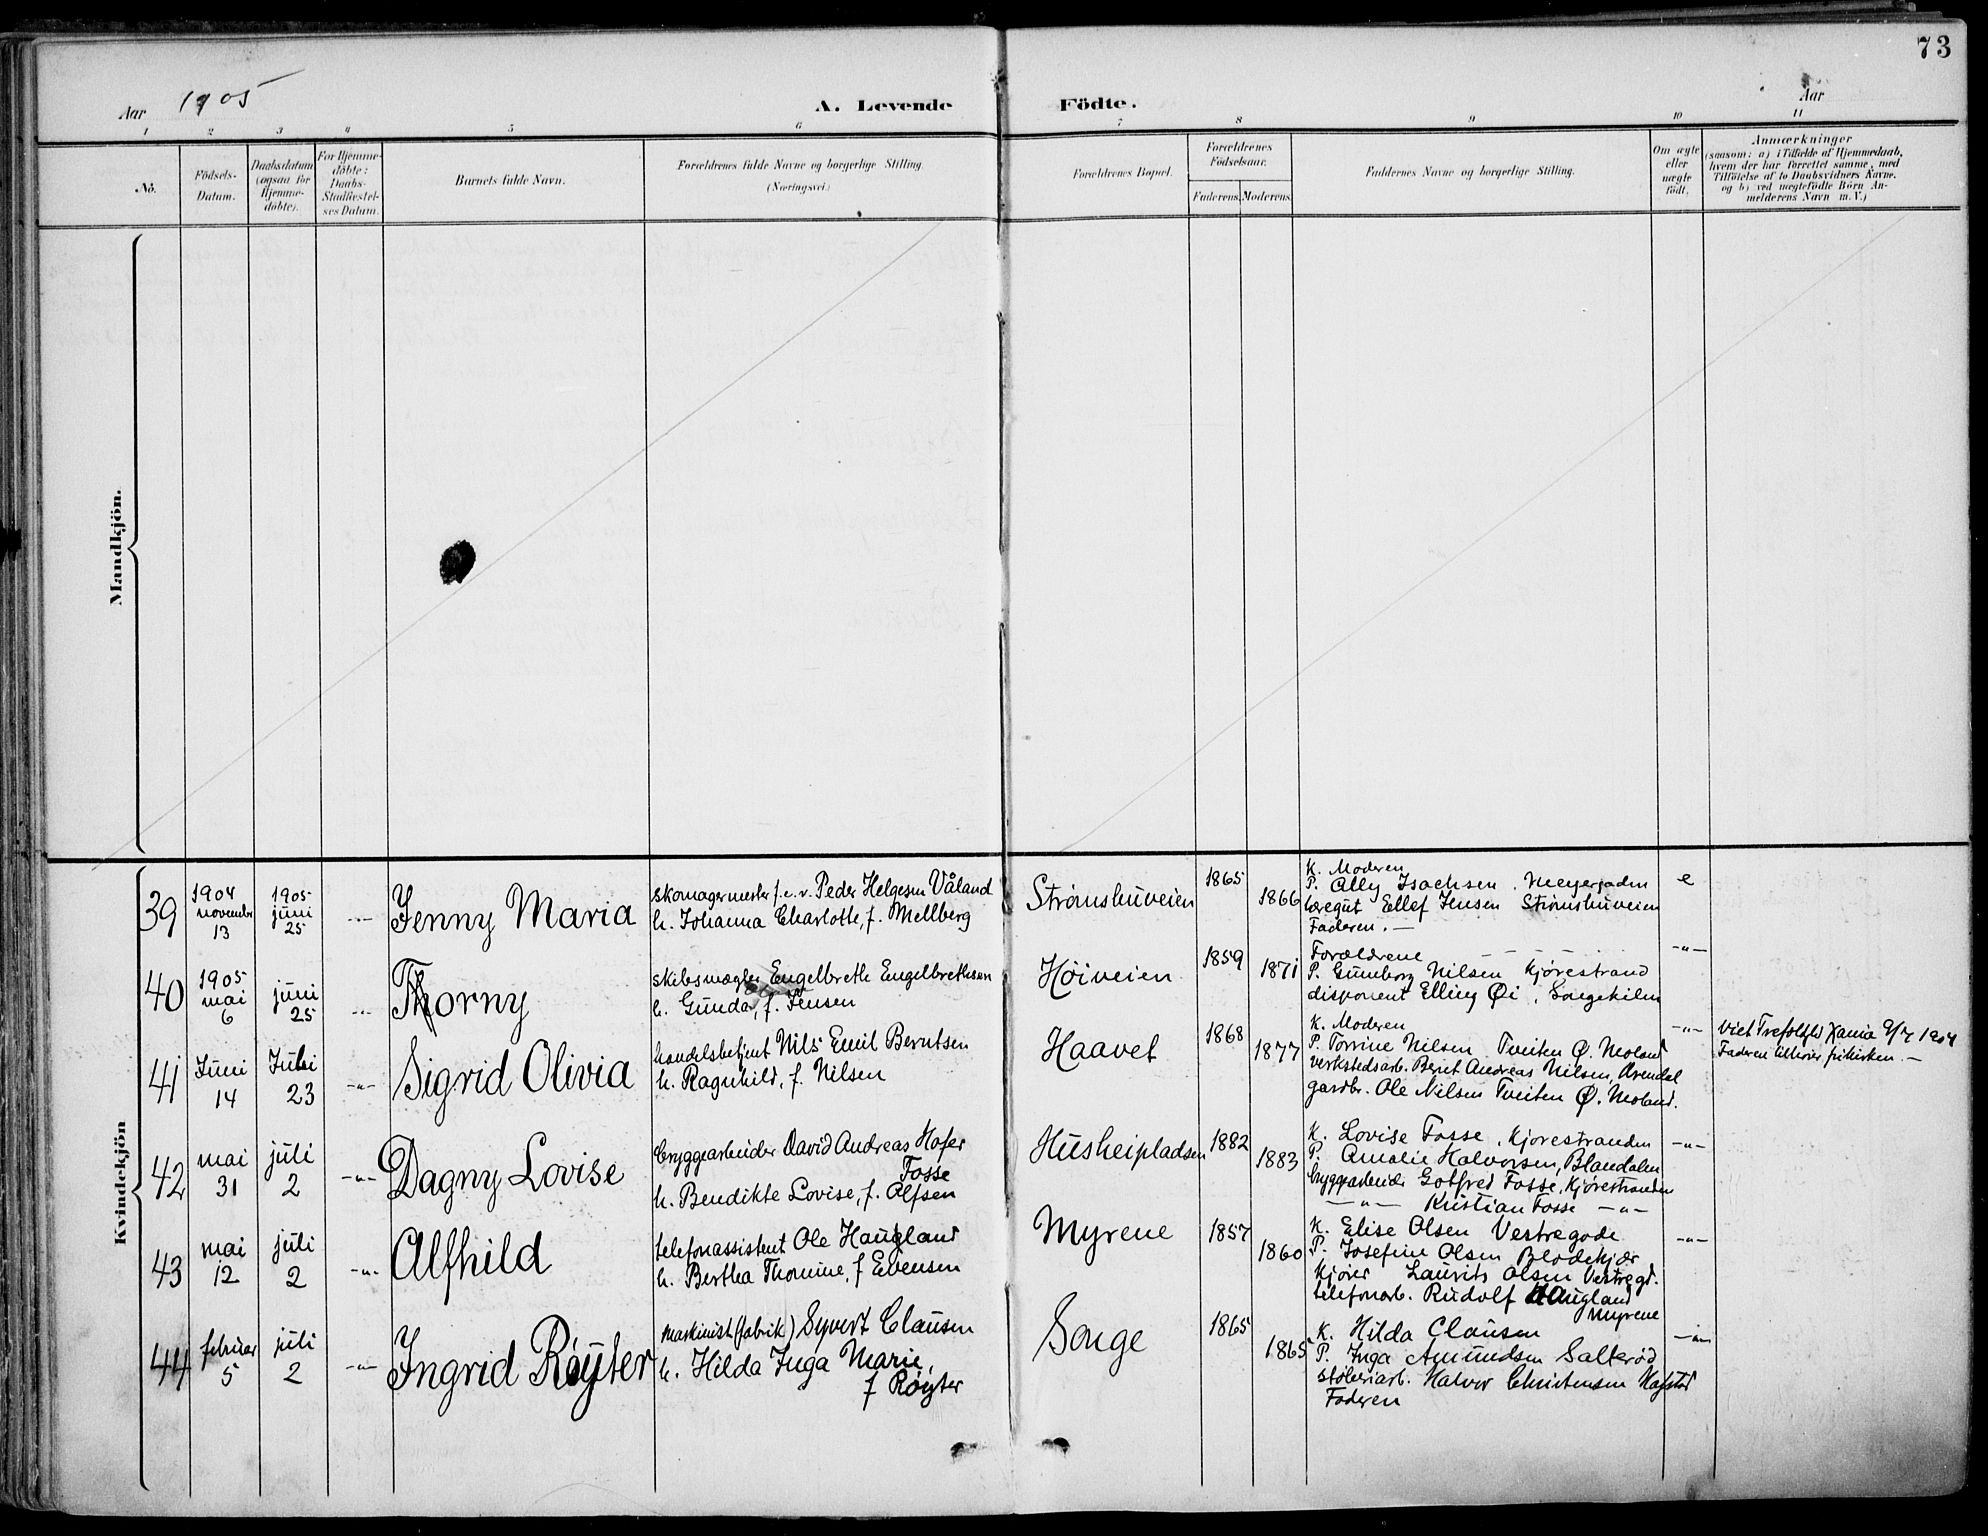 73
Aar 1905
A. Levende Födte.
Aar
1 2 3 4 5 6 7 8 9 10 11
No.
Födsels-
Datum.
Daabsdatum
(ogsaa for
Hjemme-
döbte).
For Hjemme-
döbte:
Daabs-
Stadfæstel-
ses Datum.
Barnets fulde Navn.
Forældrenes fulde Navne og borgerlige Stilling
(Næringsvei.)
Forældrenes Bopæl.
Forældrenes
Födselsaar.
Faderens. Moderens.
Faddernes Navne og borgerlige Stilling.
Om ægte
eller
uægte
födt.
Anmærkninger
(saasom: a) i Tilfælde af Hjemmedaab,
hvem der har forrettet samme, med
Tilföielse af to Daabsvidners Navne.
og b) ved uægtefödte Börn An-
melderens Navn m. V.)
Mandkjön.
Kvindekjön
39
1904
november
13
1905
juni
25
Jenny Maria
skomagermester f.e.v. Peder Helgesen Våland
h. Johanna Charlotte, f. Mellberg
Strømshuveien
1865
1866
K. Moderen
P. Ally Isachsen. Meyergaden
læregut Ellef Jensen Strømshuveien
Faderen. —
e
40
1905
mai
6
juni
25
Thorny
skibsmægler Engelbreth Engelbrethsen
h. Gunda, f. Jensen
Høiveien
1859
1871
Forældrene — —
P. Gunborg Nilsen Kjørestrand
disponent Elling Øi, Songekilen
-"-
41
Juni
14
Juli
23
-"-
Sigrid Olivia
handelsbetjent Nils Emil Berntsen
h. Ragnhild, f. Nilsen
Haavet
1868
1877
K. Moderen
P. Torrine Nilsen Tveiten Ø. Moland
verkstedsarb. Bernt Andreas Nilsen, Arendal
gardbr. Ole Nilsen Tveiten Ø. Moland.
-"-
Viet Trefoldgh. Kania 9/7 1904
Faderen tilhører frikirken. —
42
mai
31
juli
2
-"-
Dagny Lovise
bryggearbeider David Andreas Hofer
Fosse
h. Bendikte Lovise, f. Olfsen
Husheipladsen
1882
1883
K. Lovise Fosse, Kjorestranden
P. Amalie Halvorsen, Blaudalen
bryggearbeid. Gotfred Fosse, Kjørestranden
— " — Kristian Fosse -"-
-"-
43
mai
12
juli
2
-"-
Alfhild
telefonassistent Ole Haugland
h. Bertha Thomine, f Evensen
Myrene
1857
1860
K. Elise Olsen Vestregade
P. Josefine Olsen Blødekjær
Kjører Laurits Olsen Vestregd.
telefonarb. Rudolf Haugland
Myrene
-"-
44
februar
5
juli
2
-"-
Ingrid Røyter
maskinist (fabrik) Syvert Clausen
h. Hilda Inga Marie,
f Røyter
Songe
1865
1865
K. Hilda Clausen
P. Inga Amundsen Salterød
støberiarb. Halvor Christensen
Faderen
-"-